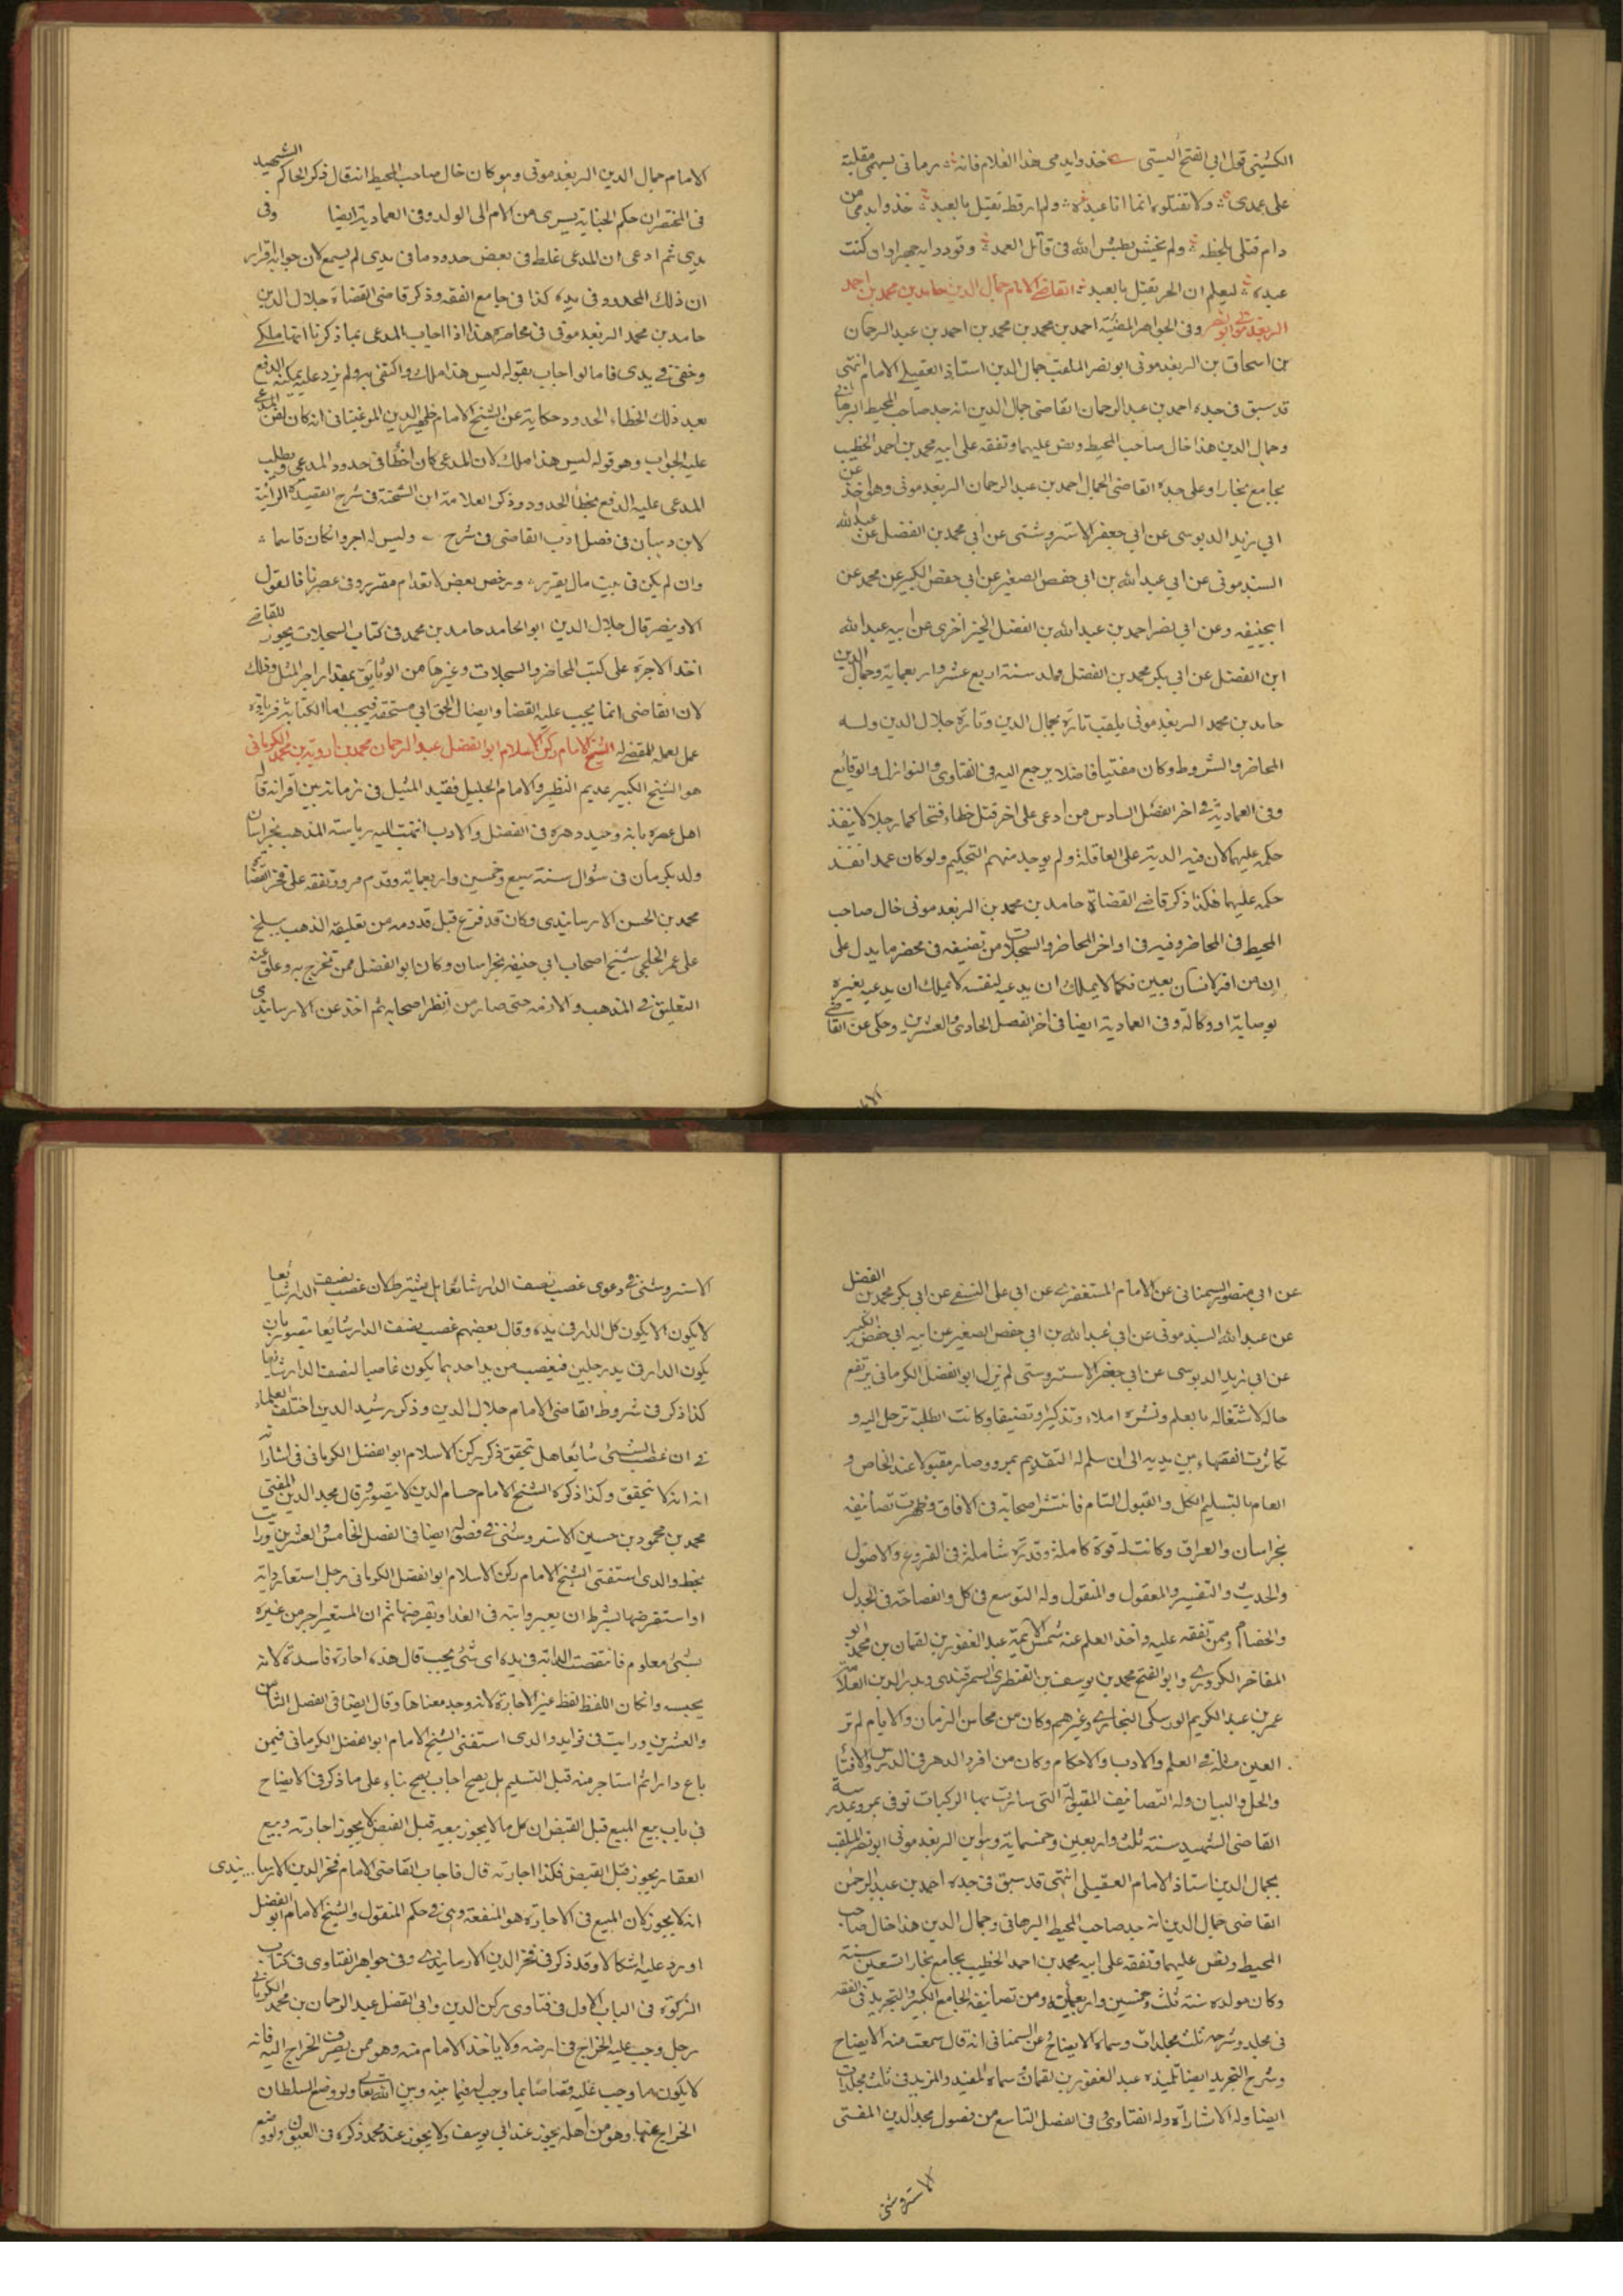 الكشنى قول ابى الفتح البستى خذوا بدمى هذا الغلام فانه رمانى بسهمى مقلتيه
على عمدى ولا تقتلوه انما انا عبده ولم ار قط يقتل بالعبد خذوا بدمى من
دام قتلى بلحظه ولم يخش بطش الله فى قاتل العمد وقودوا به جهرا وان كنت
عبده ليعلم ان الحر يقتل بالعبد القاضى الامام جمال الدين حامد بن محمد بن احمد
الريغدموني ابو نصر وفى الجواهر المضية احمد بن محمد بن محمد بن احمد بن عبد الرحمان
بن اسحاق بن الريغدموني ابو نصر الملقب جمال الدين استاذ العقيلي الامام انتهى
قد سبق فى جده احمد بن عبد الرحمان القاضى جمال الدين انه جد صاحب المحيط البرهاني
وجمال الدين هذا خال صاحب المحيط ونص عليهما وتفقه على ابيه محمد بن احمد الخطيب
بجامع بخارا وعلى جده القاضى الجمال احمد بن عبد الرحمان الريغدموني وهو اخذ عن
ابي زيد الدبوسى عن ابي جعفر الاستروشنى عن ابي محمد بن الفضل عن عبد الله
السبذموني عن ابي عبد الله بن ابي حفص الصغير عن ابي حفص الكبير عن محمد عن
ابيحنيفه وعن ابي نصر احمد بن عبد الله بن الفضل الخيزاخزى عن ابيه عبد الله
ابن الفضل عن ابي بكر محمد بن الفضل ولد سنة اربع عشر واربعماية وجمال الدين
حامد بن محمد الريغدموني يلقب تارة بجمال الدين وتارة جلال الدين وله
المحاضر والشروط وكان مفتيا فاضلا يرجع اليه فى الفتاوى والنوازل والوقائع
وفى العمادية في اخر الفصل السادس من ادعى على اخر قتل خطاء فتحاكما رجلا لا ينفذ
حكمه عليهما لان فيه الدية على العاقلة ولم يوجد منهم التحكيم ولو كان عمدا نفذ
حكمه عليهما هكذا ذكر قاضى القضاة حامد بن محمد بن الريغدموني خال صاحب
المحيط فى المحاضر وفيه فى اواخر المحاضر والسجلات من تصنيفه فى محضر ما يدل على
ان من اقر لانسان بعين فكما لا يملك ان يدعيه لنفسه لا يملك ان يدعيه لغيره
بوصاية او وكالة وفى العمادية ايضا فى اخر الفصل الحادى والعشرين وحكى عن القاضى
الا
الامام جمال الدين الريغدموني وهو كان خال صاحب المحيط انه قال ذكر الحاكم الشهيد
فى المختصر ان حكم الجناية يسرى من الام الى الولد وفى العمادية ايضا وفى
يدى ثم ادعى ان المدعى غلط فى بعض حدود ما فى يدى لم يسمع لان جوابه اقرار
ان ذلك المحدود فى يده كذا فى جامع الفقه وذكر قاضى القضاة جلال الدين
حامد بن محمد الريغدموني فى محاضره هذا اذا اجاب المدعى بما ذكرنا انها ملكى
وحقى وفي يدى فاما لو اجاب بقوله ليس هذا ملك واكتفى به ولم يزد عليه يمكنه الدفع
بعد ذلك الخطاء الحدود حكاية عن الشيخ الامام ظهير الدين المرغينانى انه كان يلقن المدعى
عليه الجواب وهو قوله ليس هذا ملك لان المدعى كان اخطأ فى حدود المدعى ويطلب
المدعى عليه الدفع بخطأ الحدود وذكر العلامة ابن الشحنة فى شرح القصيدة الرائية
لابن وهبان فى فصل ادب القاضى فى شرح وليس له اجر وان كان قاسما
وان لم يكن فى بيت مال يقرر ورخص بعض لانعدام مقرر وفى عصرنا فالقول
الاو ينصر قال جلال الدين ابو المحامد حامد بن محمد فى كتاب السجلات يجوز للقاضى
اخذ الاجرة على كتب المحاضر والسجلات وغيرها من الوثايق بمقدار اجر المثل وذلك
لان القاضى انما يجب عليه القضا وايصال الحق الى مستحقه فيجب اما الكتابة فزيادة
عمل يعمله للمقضى له الشيخ الامام ركن الاسلام ابو الفضل عبد الرحمان محمد بن ارويه بن محمد الكرماني
هو الشيخ الكبير عديم النظير والامام الجليل فقيد المثيل فى زمانه بين اقرانه قال
اهل عصره بانه وحيد دهره فى الفضل والادب انتهت اليه رياسة المذهب بخراسان
ولد بكرمان فى شوال سنة سبع وخمسين واربعماية وقدم مرو وتفقه على فخر القضاة
محمد بن الحسن الارسابندى وكان قد فرغ قبل قدومه من تعليقة المذهب ببلخ
على عمر الخلجى شيخ اصحاب ابي حنيفه بخراسان وكان ابو الفضل ممن تخرج به وعلق عنه
التعليق في المذهب والازمه حتى صار من انظر اصحابه ثم اخذ عن الارسابندى
عن ابي منصور السمنانى عن الامام المستغفرى عن ابي على النسفى عن ابي بكر محمد بن الفضل
عن عبد الله السبذموني عن ابي عبد الله بن ابي حفص الصغير عن ابيه ابي حفص الكبير
عن ابي زيد الدبوسى عن ابي جعفر الاستروشنى لم يزل ابو الفضل الكرمانى يرتفع
حاله لاشتغاله بالعلم ونشره املاء وتذكيرا وتصنيفا وكانت الطلبة ترحل اليه و
تكاثرت الفقهاء بين يديه الى ان سلم له التقديم بمرو وصار مقبولا عند الخاص و
العام بالتسليم الكل والقبول التام فانتشر اصحابه فى الافاق وظهرت تصانيفه
بخراسان والعراق وكانت له قوة كاملة وقدرة شاملة فى الفروع والاصول
والحديث والتفسير والمعقول والمنقول وله التوسع فى كل والفصاحة فى الجدل
والخصام وممن تفقه عليه واخذ العلم عنه شمس الائمة عبد الغفور بن لقمان بن محمد ابو
المفاخر الكردرى وابو الفتح محمد بن يوسف بن القنطرى السمرقندى وبدر الدين العلامة
عمر بن عبد الكريم الورسكى البخارى وغيرهم وكان من محاسن الزمان والايام لم تر
العين مثله في العلم والادب والاحكام وكان من افرد الدهر فى الدرس والافتاء
والحل والبيان وله التصانيف المقبولة التى سارت بها الركبات توفى بمرو وعدرسة
القاضى الشهيد سنة ثلث واربعين وخمسماية وبنواين الريغدموني ابو نصر الملقب
بجمال الدين استاذ الامام العقيلى انتهى قد سبق فى جده احمد بن عبد الرحمن
القاضى جمال الدين انه جد صاحب المحيط البرهانى وجمال الدين هذا خال صاحب
المحيط ونص عليهما وتفقه على ابيه محمد بن احمد الخطيب بجامع بخارا تسعين سنة
وكان مولده سنة ثلث وخمسين واربعماية ومن تصانيفه الجامع الكبير والتجريد فى الفقه
فى مجلد وشرحه ثلث مجلدات وسماه الايضاح عن السمنانى انه قال سمعت منه الايضاح
وشرح التجريد ايضا تلميذه عبد الغفور بن لقمان وسماه المفيد والمزيد فى ثلث مجلدات
ايضا وله الاشارات وله الفتاوى وفى الفصل التاسع من فصول مجد الدين المفتى
الاستروشنى
الاستروشنى في دعوى غصب نصف الدار شائعا بل يشترط لان غصب نصف الدار شايعا
لا يكون الا يكون كل الدار فى يده وقال بعضهم غصب نصف الدار شايعا يتصور بان
يكون الدار فى يد رجلين فيغصب من يد احدهما يكون غاصبا لنصف الدار شايعا
كذا ذكر فى شروط القاضى الامام جلال الدين وذكر رشيد الدين اختلف العلماء
في ان غصب الشئ شايعا هل يتحقق ذكر ركن الاسلام ابو الفضل الكرمانى فى اشاراته
انه لا يتحقق وكذا ذكره الشيخ الامام حسام الدين لا يتصور وقال مجد الدين المفتى
محمد بن محمود بن حسين الاستروشنى في فصوله ايضا فى الفصل الخامس والعشرين ورايت
بخط والدى استفتى الشيخ الامام ركن الاسلام ابو الفضل الكرمانى رجل استعار دابة
او استقرضها بشرط ان يعير دابته فى الغد او يقرضها ثم ان المستعير اجر من غيره
بشئ معلوم فانتقصت الدابة فى يده اى شئ يجب قال هذه اجارة فاسدة لانه
يحبسه وان كان اللفظ لفظ غير الاجارة لانه وجد معناها وقال ايضا فى الفصل الثامن
والعشرين ورايت فى فوايد والدى استفتى الشيخ الامام ابو الفضل الكرمانى فيمن
باع دارا ثم استاجر منه قبل التسليم هل يصح اجاب يصح بناء على ما ذكر فى الايضاح
فى باب بيع المبيع قبل القبض ان كل ما لا يجوز بيعه قبل القبض لا يجوز اجارته وبيع
العقار يجوز قبل القبض فكذا اجارته قال فاجاب القاضى الامام فخر الدين الارسابندى
انه لا يجوز لان المبيع فى الاجارة هو المنفعة وهى في حكم المنقول والشيخ الامام ابو الفضل
اورد عليه اشكالا وقد ذكر فى فخر الدين الارسابندى وفى جواهر الفتاوى فى كتاب
الزكوة فى الباب الاول فى فتاوى ركن الدين وابى الفضل عبد الرحمان بن محمد الكرمانى
رجل وجب عليه الخراج فى ارضه ولا ياخذ الامام منه وهو ممن يصرف الخراج اليه فانه
لا يكون ما وجب عليه قصاصا بما وجب له فيما بينه وبين الله تعالى ولو وضع السلطان
الخراج عنها وهو من اهله يجوز عند ابي يوسف ولا يجوز عند محمد ذكره فى العيون ولو وضع